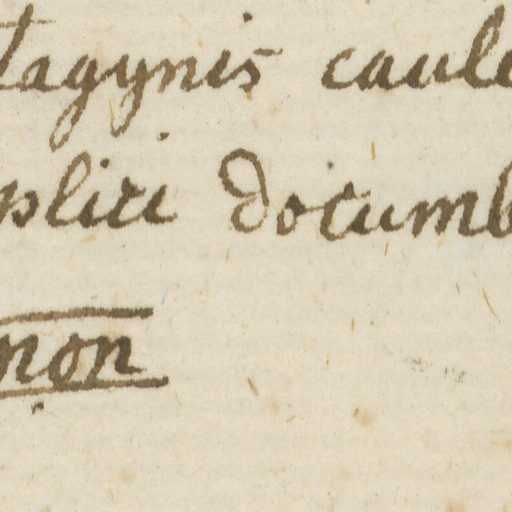 tagynis caule
plici documb
non